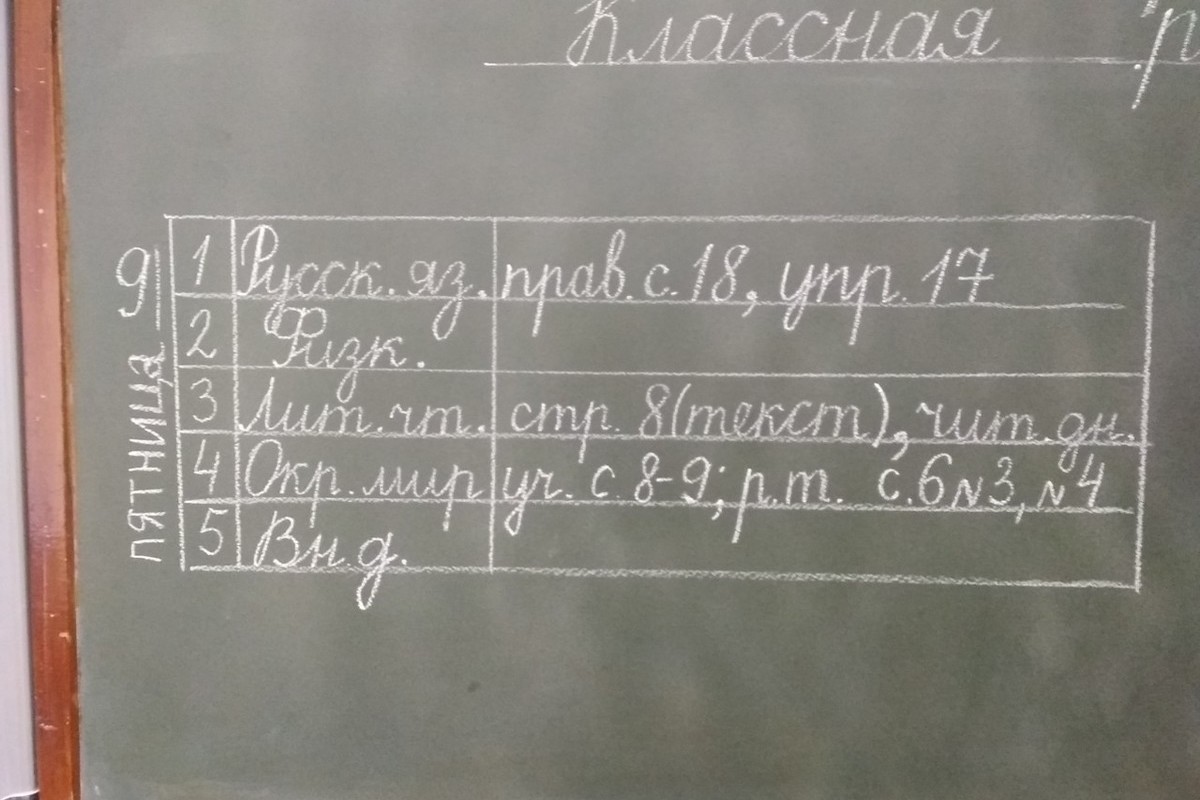 Классная р
пятница 9
1 Русск. яз. прав. с. 18, упр. 17
2 Физк.
3 Лит. чт. стр. 8 (текст), чит. дн.
4 Окр. мир уч. с. 8-9; р.т. с. 6 №3, №4
5 Вн. д.